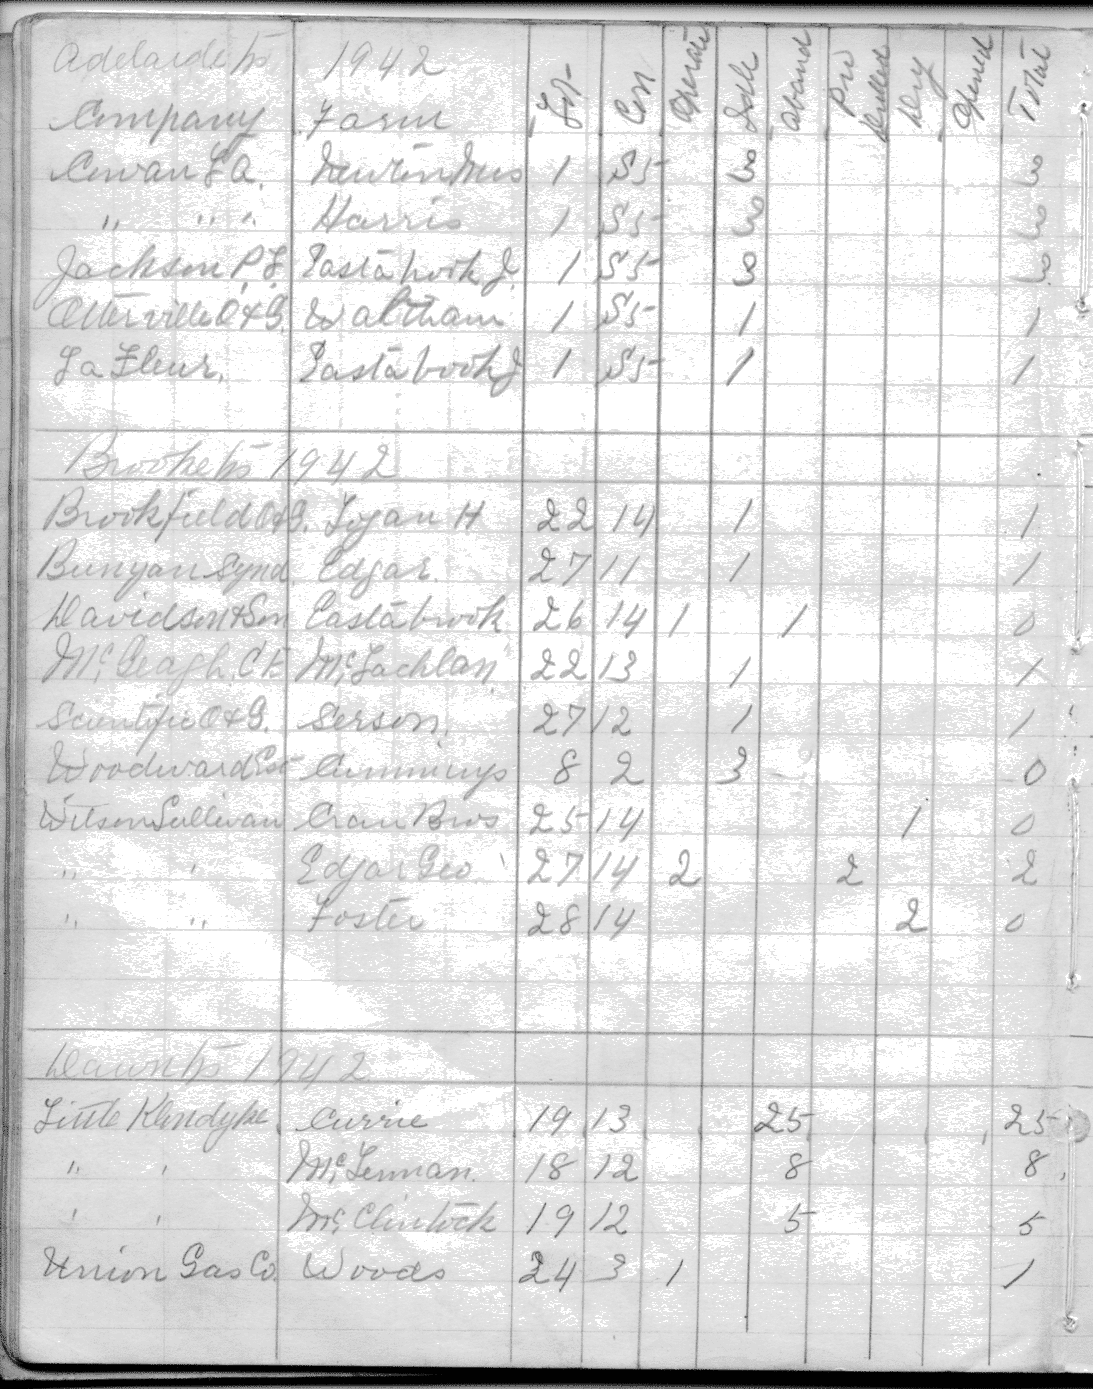 Adelaide tp 1942
Company Farm Lot Con Operate Idle Aband Pro Drilled Dry Opened Total
Cowan L a. 1 S5 3 3
" " " Harris 1 S5 3 3
Jackson P. L. Eastabrook J. 1 S5 3 3
Otterville O & G. Waltham 1 S5 1 1
La Fleur. Eastabrook J 1 S5 1 1
Brooke tp 1942
Brookfield O&G. Logan H 22 14 1 1
Bunyan Synd. Edgar. 27 11 1 1
Davidson & Son Eastabrook 26 14 1 1 0
McCreagh. C E McLachlan 22 13 1 1
Scientific O & G. Serson. 27 12 1 1
Woodward Est Cummings 8 2 3 0
Wilson Sullivan Cran Bros 25 14 1 0
" " Edgar Geo. 27 14 2 2 2
" " Foster 28 14 2 0
Dawn tp 1942
Little Klendyke. Currie 19 13 25 25
" " McLennan. 18 12 8 8
" " McClintock 19 12 5 5
Union Gas Co Woods 24 3 1 1